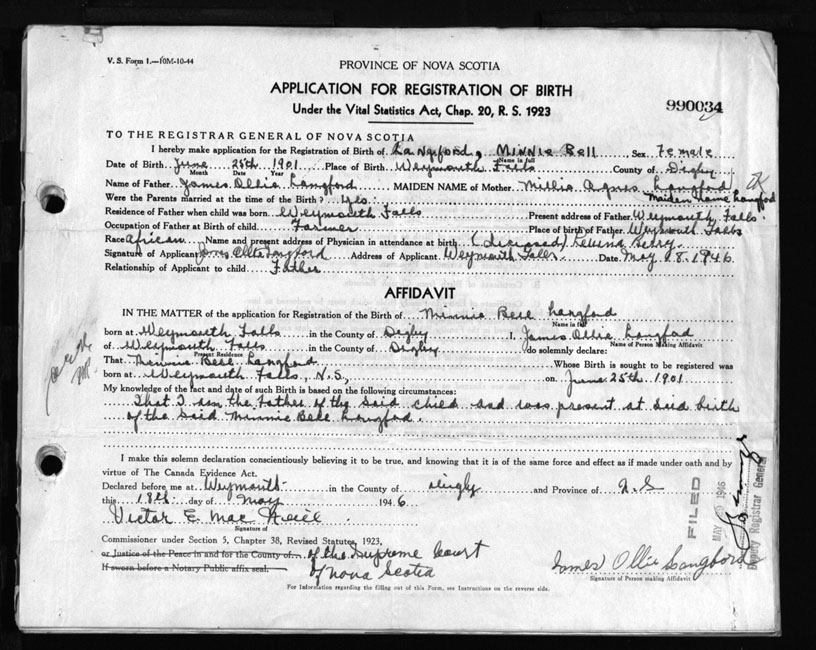 V. S. Form 1.—10M-10-44
PROVINCE OF NOVA SCOTIA
APPLICATION FOR REGISTRATION OF BIRTH
990034
Under the Vital Statistics Act, Chap. 20, R. S. 1923
TO THE REGISTRAR GENERAL OF NOVA SCOTIA
I hereby make application for the Registration of Birth of Langford, Minnie Bell Sex Female
Name in full
Date of Birth June 25th 1901 Place of Birth Weymouth Falls County of Digby
Month Date Year
Name of Father James Ollie Langford MAIDEN NAME of Mother Millie Agnes Langford
Maiden name Langford
Were the Parents married at the time of the Birth? Yes.
Residence of Father when child was born Weymouth Falls Present address of Father Weymouth Falls.
Occupation of Father at Birth of child Farmer Place of birth of Father Weymouth Falls
Race African Name and present address of Physician in attendance at birth (deceased)
Signature of Applicant James Ollie Langford Address of Applicant Weymouth Falls. Date May 18. 1946
Relationship of Applicant to child Father
AFFIDAVIT
IN THE MATTER of the application for Registration of the Birth of Minnie Bell Langford
Name in full
born at Weymouth Falls in the County of Digby I, James Ollie Langford
Name of Person Making Affidavit
of Weymouth Falls in the County of Digby do solemnly declare:
Present Residence
That Minnie Bell Langford Whose Birth is sought to be registered was
born at Weymouth Falls, N.S, on June 25th 1901
My knowledge of the fact and date of such Birth is based on the following circumstances:
That I am the Father of the said child and was present at said birth
of the said Minnie Bell Langford.
I make this solemn declaration conscientiously believing it to be true, and knowing that it is of the same force and effect as if made under oath and by
virtue of The Canada Evidence Act.
Declared before me at Weymouth in the County of Digby and Province of N.S
this 18th day of May 1946
Victor E. Mac Neill
Signature of
Commissioner under Section 5, Chapter 38, Revised Statutes, 1923,
or Justice of the Peace in and for the County of of the Supreme Court
If sworn before a Notary Public affix seal. of Nova Scotia
James Ollie Langford
Signature of Person making Affidavit
For Information regarding the filling out of this Form, see Instructions on the reverse side.
FILED
MAY 1946
Deputy Registrar General